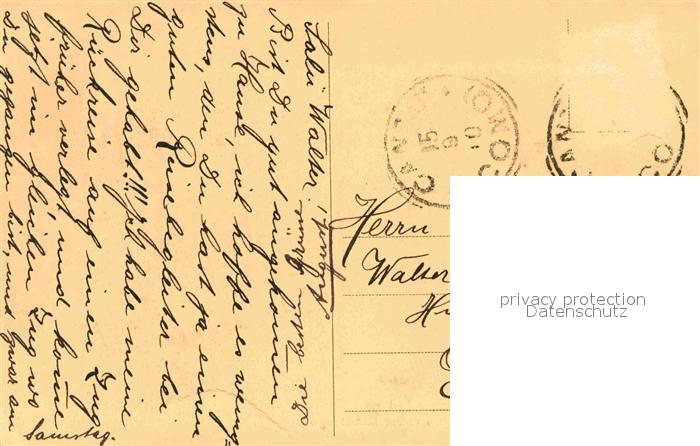 Salü Walter!
Bist Du gut angekommen
zu Hause, ich hoffe es wenig-
stens, den Du hast ja einen
guten Reisebegleiter bei
Dir gehabt!!!! Ich habe meine
Rückreise auf einen Zug
früher verlegt und komme
jetzt im gleichen Zug wo
Du gegangen bist, und zwar am
Samstag.
Die
Herrn
Walter
CANTÙ (COMO)
15
9
10
CAN
CO
privacy protection
Datenschutz